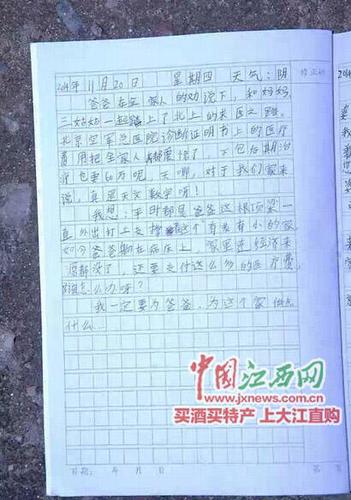 2014年11月20日 星期四 天气:阴
爸爸在全家人的劝说下,和妈妈、
三姑姑一起踏上了北上的求医之路。
北京空军总医院诊断证明书上的医疗
费用把全家人都惊呆了,不包后期治
疗也要60万呢,天哪,对于我们家来
说,真是天文数字呀!
我想:平时都是爸爸这根顶梁一
直外出打工支撑着这个有老有小的家,
如今爸爸躺在病床上,家里连经济来
源都没了,还要支付这么多的医疗费,
怎么办呀?
我一定要为爸爸,为这个家做点
什么…
中国江西网
www.jxnews.com.cn
买酒买特产 上大江直购
日期: 年 月 日